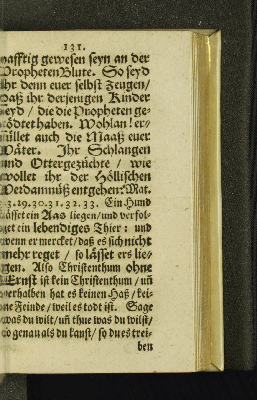 131.
hafftig gewesen seyn an der
Propheten Blute. So seyd
Ihr denn euer selbst Zeugen/
Daß ihr derjenigen Kinder
seyd / die die Propheten ge-
tödtet haben. Wohlan! er-
füllet auch die Maaß euer
Väter. Ihr Schlangen
und Ottergezüchte / wie
wollet ihr der Höllischen
Verdamnüß entgehen? Mat.
23. 29. 30. 31. 32. 33. Ein Hund
lässet ein Aas liegen/ und verfol-
get ein lebendiges Thier: und
wenn er mercket/ daß es sich nicht
mehr reget / so lässet ers lie-
gen. Also Christenthum ohne
Ernst ist kein Christenthum / uñ
derhalben hat es keinen Haß / kei-
ne Feinde / weil es todt ist. Sage
was du wilt/ uñ thue was du wilst/
so genau als du kanst/ so du es trei-
ben